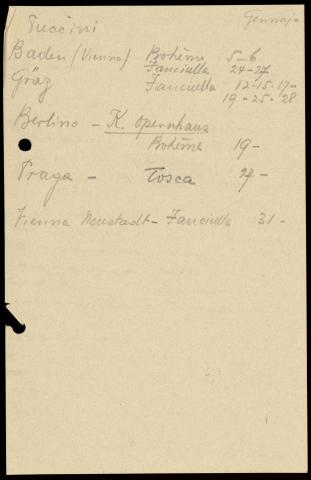 Puccini Gennajo
Baden (Vienna) Bohème 5-6
Fanciulla 24-27
Gräz Fanciulla 12-15-17-
19-25-28
Berlino - K. Opernhaus
Bohème 19-
Praga - Tosca 27-
Vienna Neustadt - Fanciulla 31-